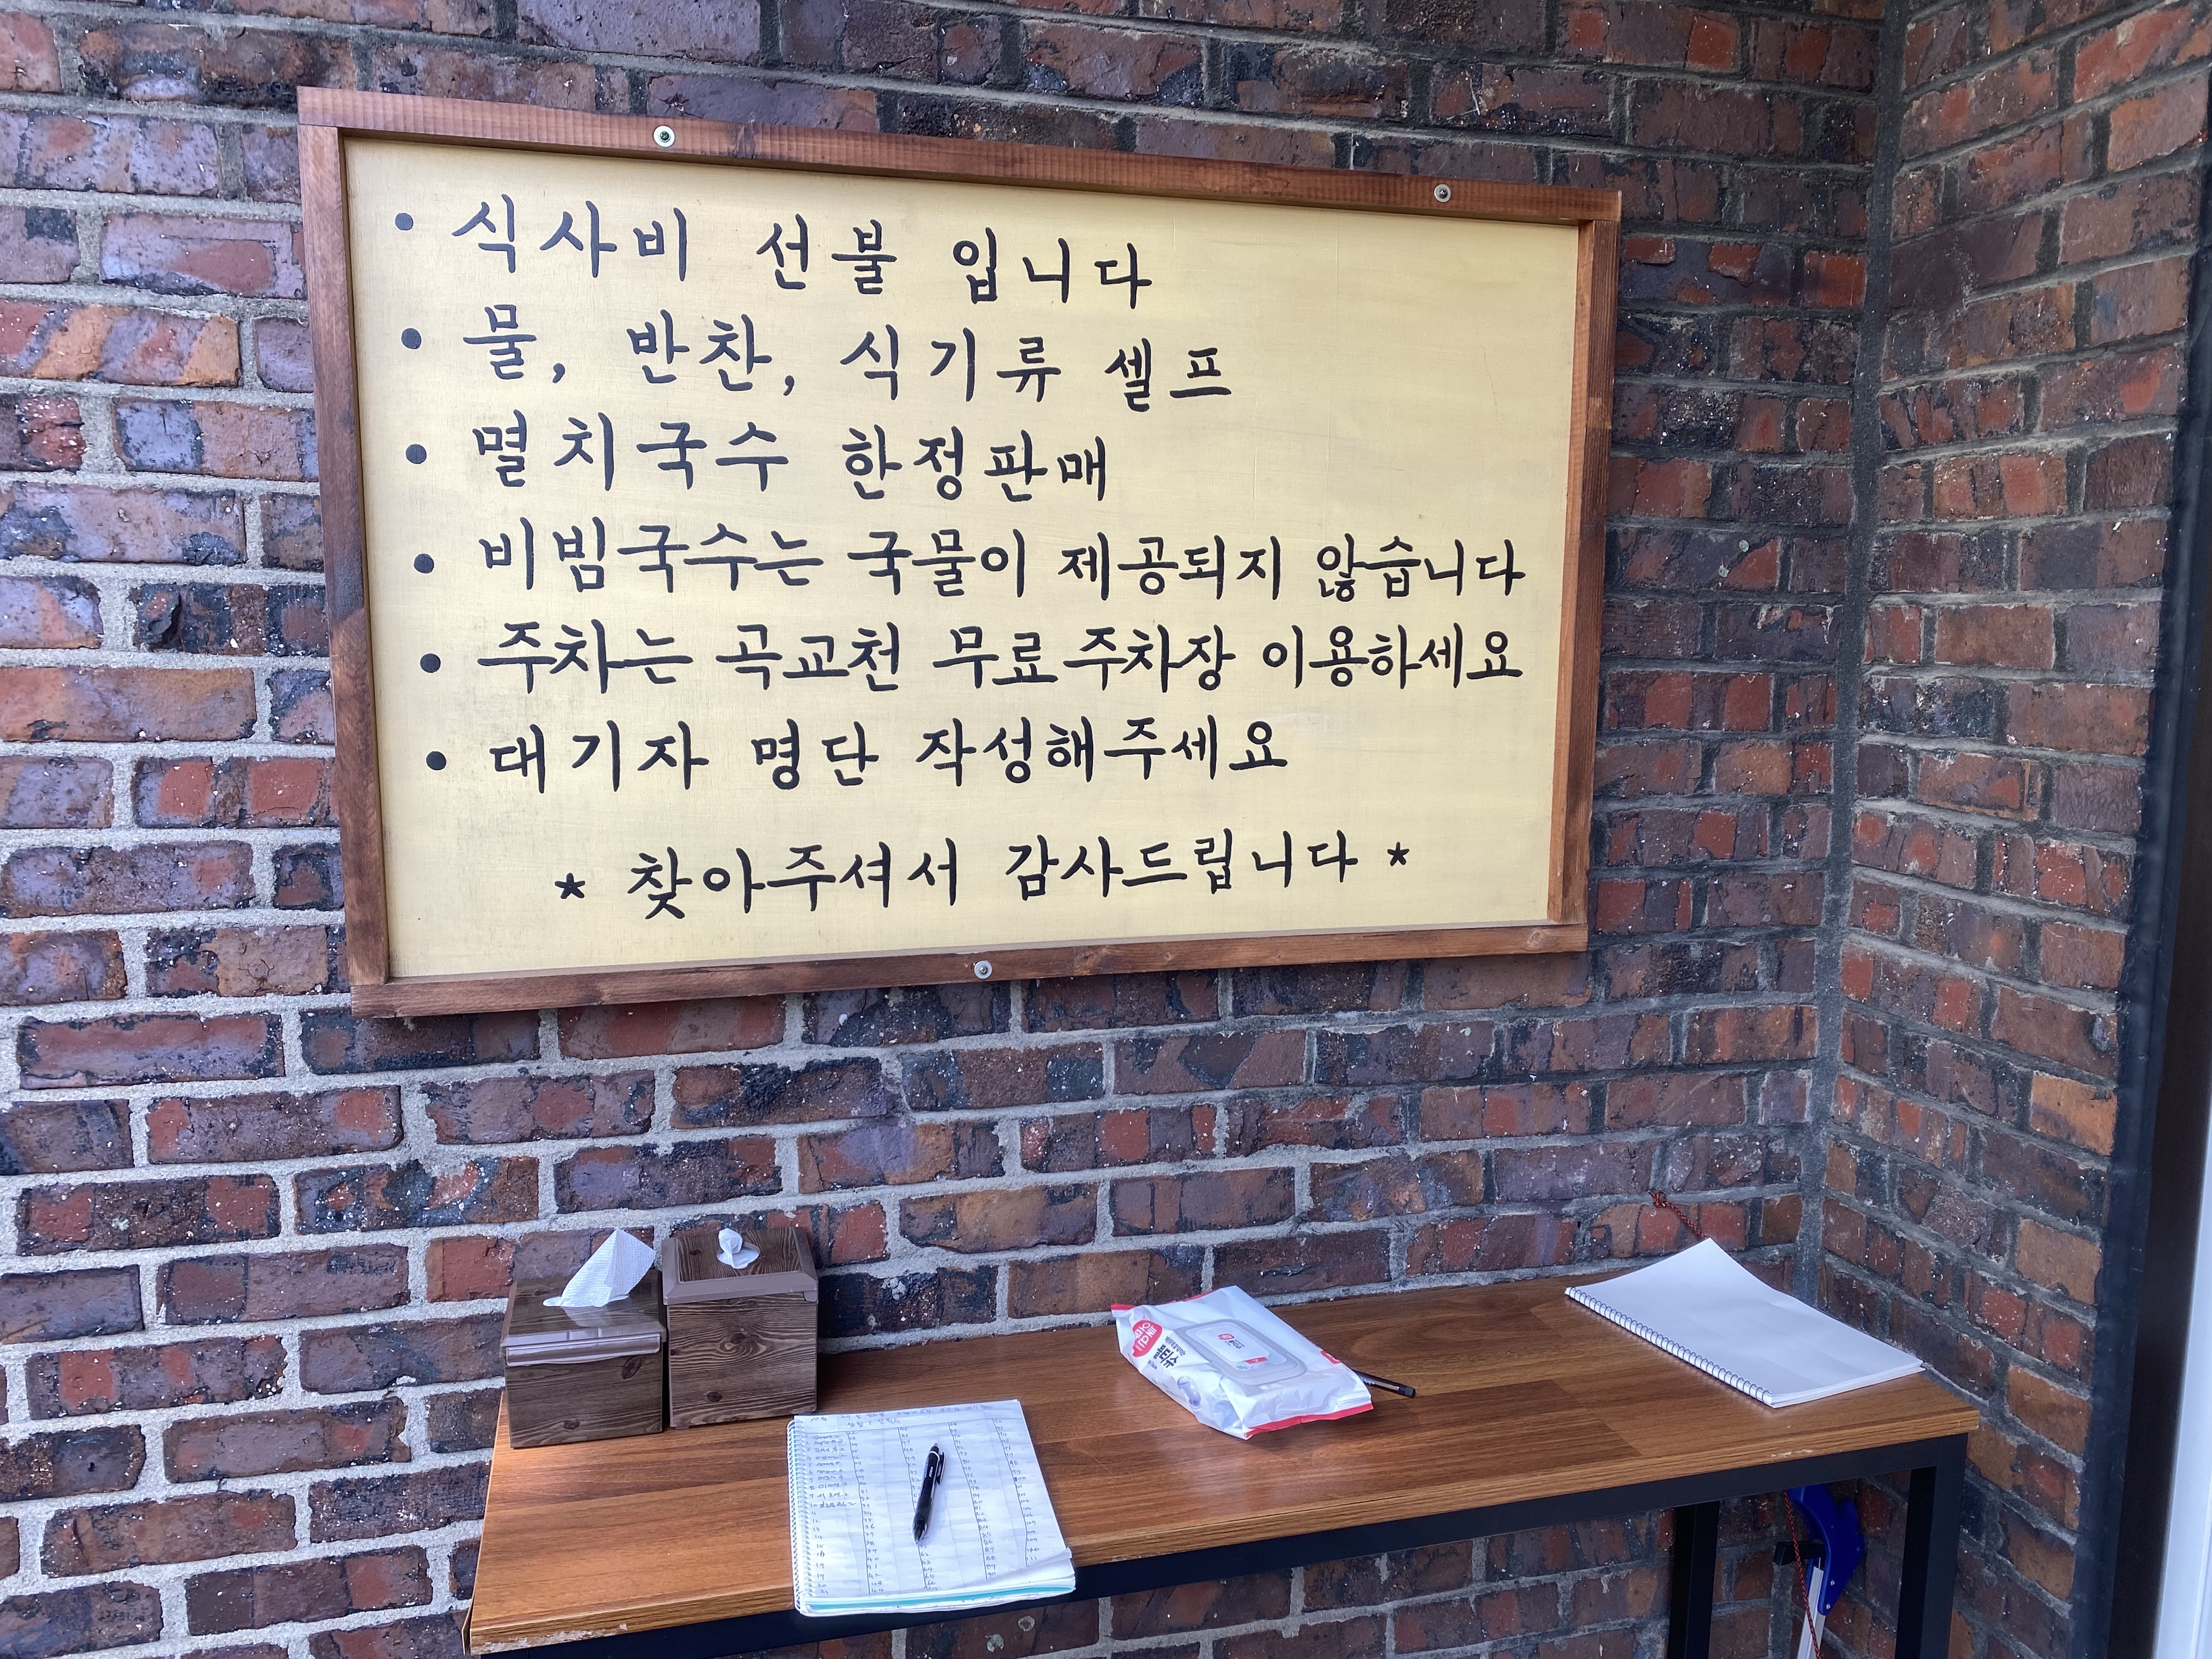 • 식사비 선불 입니다
• 물, 반찬, 식기류 셀프
• 멸치국수 한정판매
• 비빔국수는 국물이 제공되지 않습니다
• 주차는 곡교천 무료주차장 이용하세요
• 대기자 명단 작성해주세요
* 찾아주셔서 감사드립니다 *
물티슈